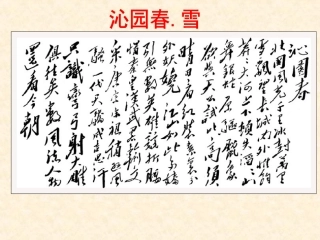 沁园春.雪
沁园春
北国风光千里冰封万里
雪飘望长城内外惟馀
莽莽大河上下顿失滔滔山
舞银蛇原驱腊象
欲与天公试比高须
晴日看红装素裹分
外妖娆江山如此多娇
引无数英雄竞折腰
惜秦皇汉武略输文
采唐宗宋祖稍逊风
骚一代天骄成吉思汗
只识弯弓射大雕
俱往矣数风流人物
还看今朝